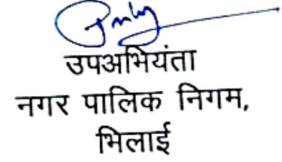 उपअभियंता
नगर पालिक निगम,
भिलाई